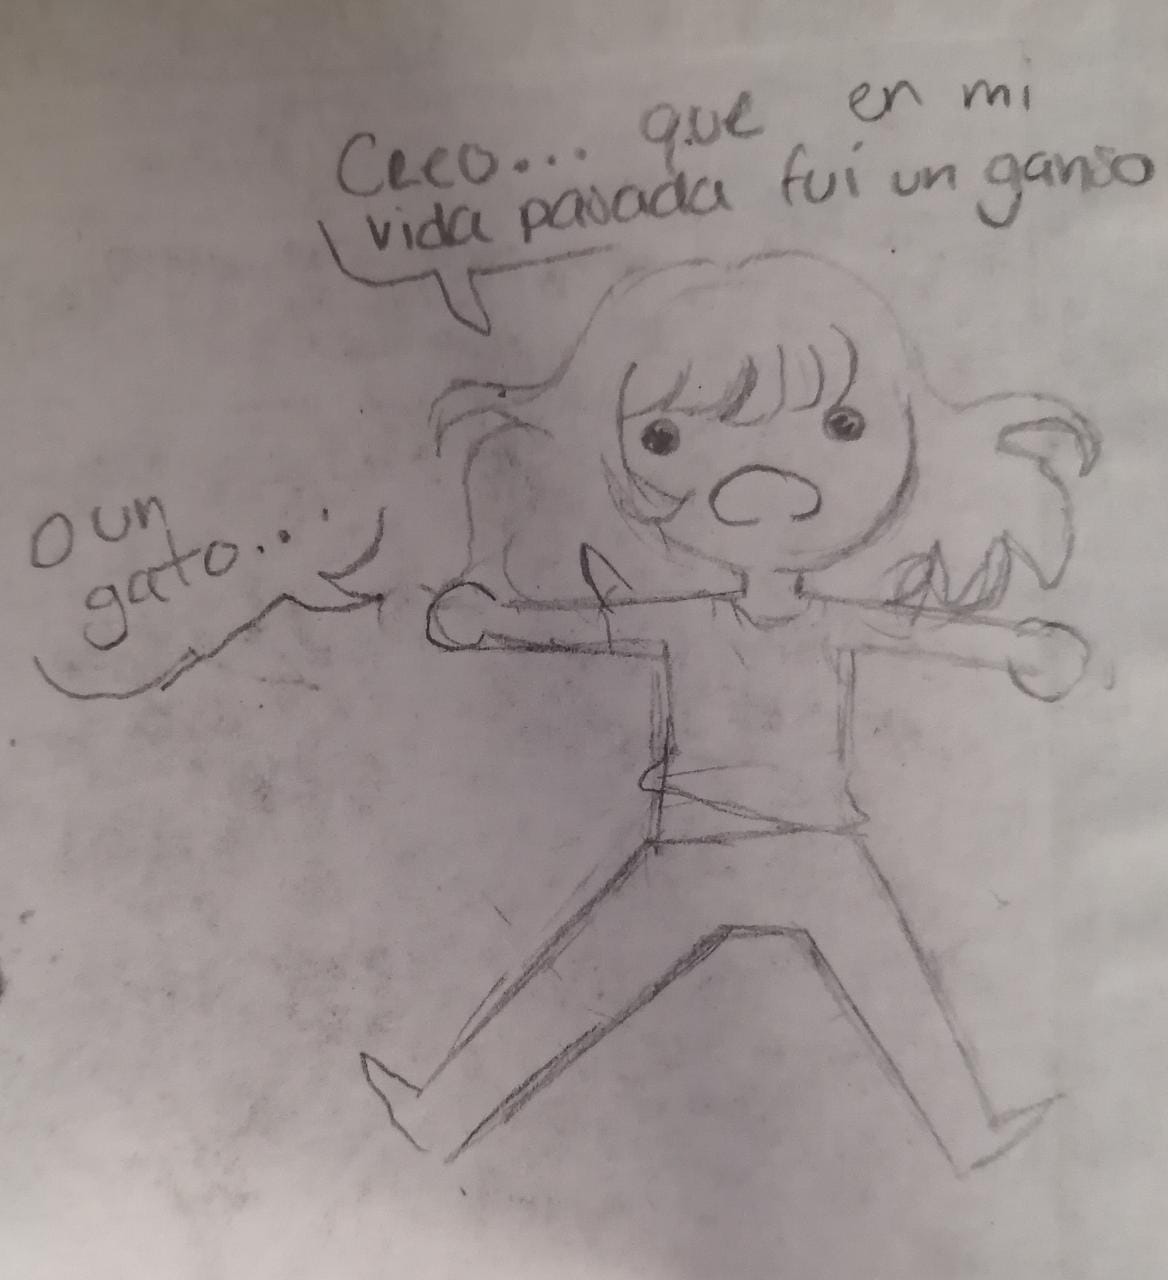 Creo... que en mi
vida pasada fuí un ganso
o un
gato...